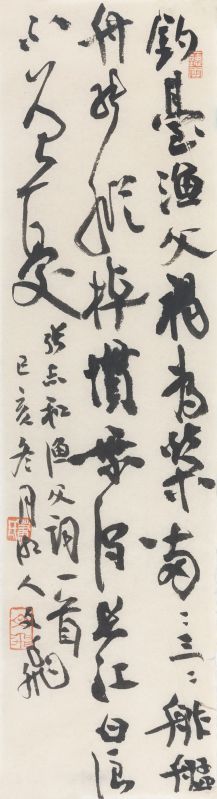 釣臺漁父褐為裘兩:三:舴艋
舟能縱棹慣乘流長江白浪
不曾憂
張志和漁父詞一首
己亥冬月人文飛